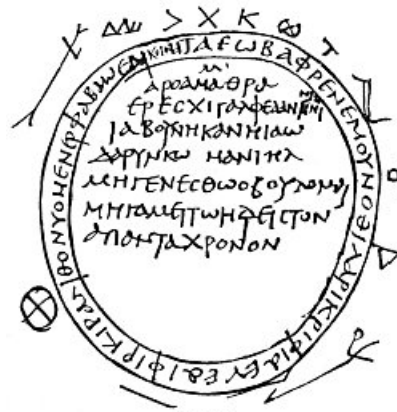 ΙΑΕΩΒΑΦΡΕΝΕΜΟΥΝΟΘΙΛΑΡΙΚΡΙΦΙΑΕΥΕΑΙΦΙΡΚΙΡΑΛΙΘΟΝΥΟΜΕΝΕΡΦΑΒΩΕΑΙ
ΑΡΟΑΜΑΘΡΑ
ΕΡΕϹΧΙΓΑΛΦΕΔΑΝ
ΙΑΒΟΥΝΗΚΑΝΗΙΑΩ
ΔΑΡΥΝΚΩ ΜΑΝΙΗΛ
ΜΗΓΕΝΕϹΘΩΟΖΟΥΛΟΜΑΙ
ΜΗΓΑΜΕΙΤΩΗΔΕΙϹΤΟΝ
ΑΠΑΝΤΑΧΡΟΝΟΝ